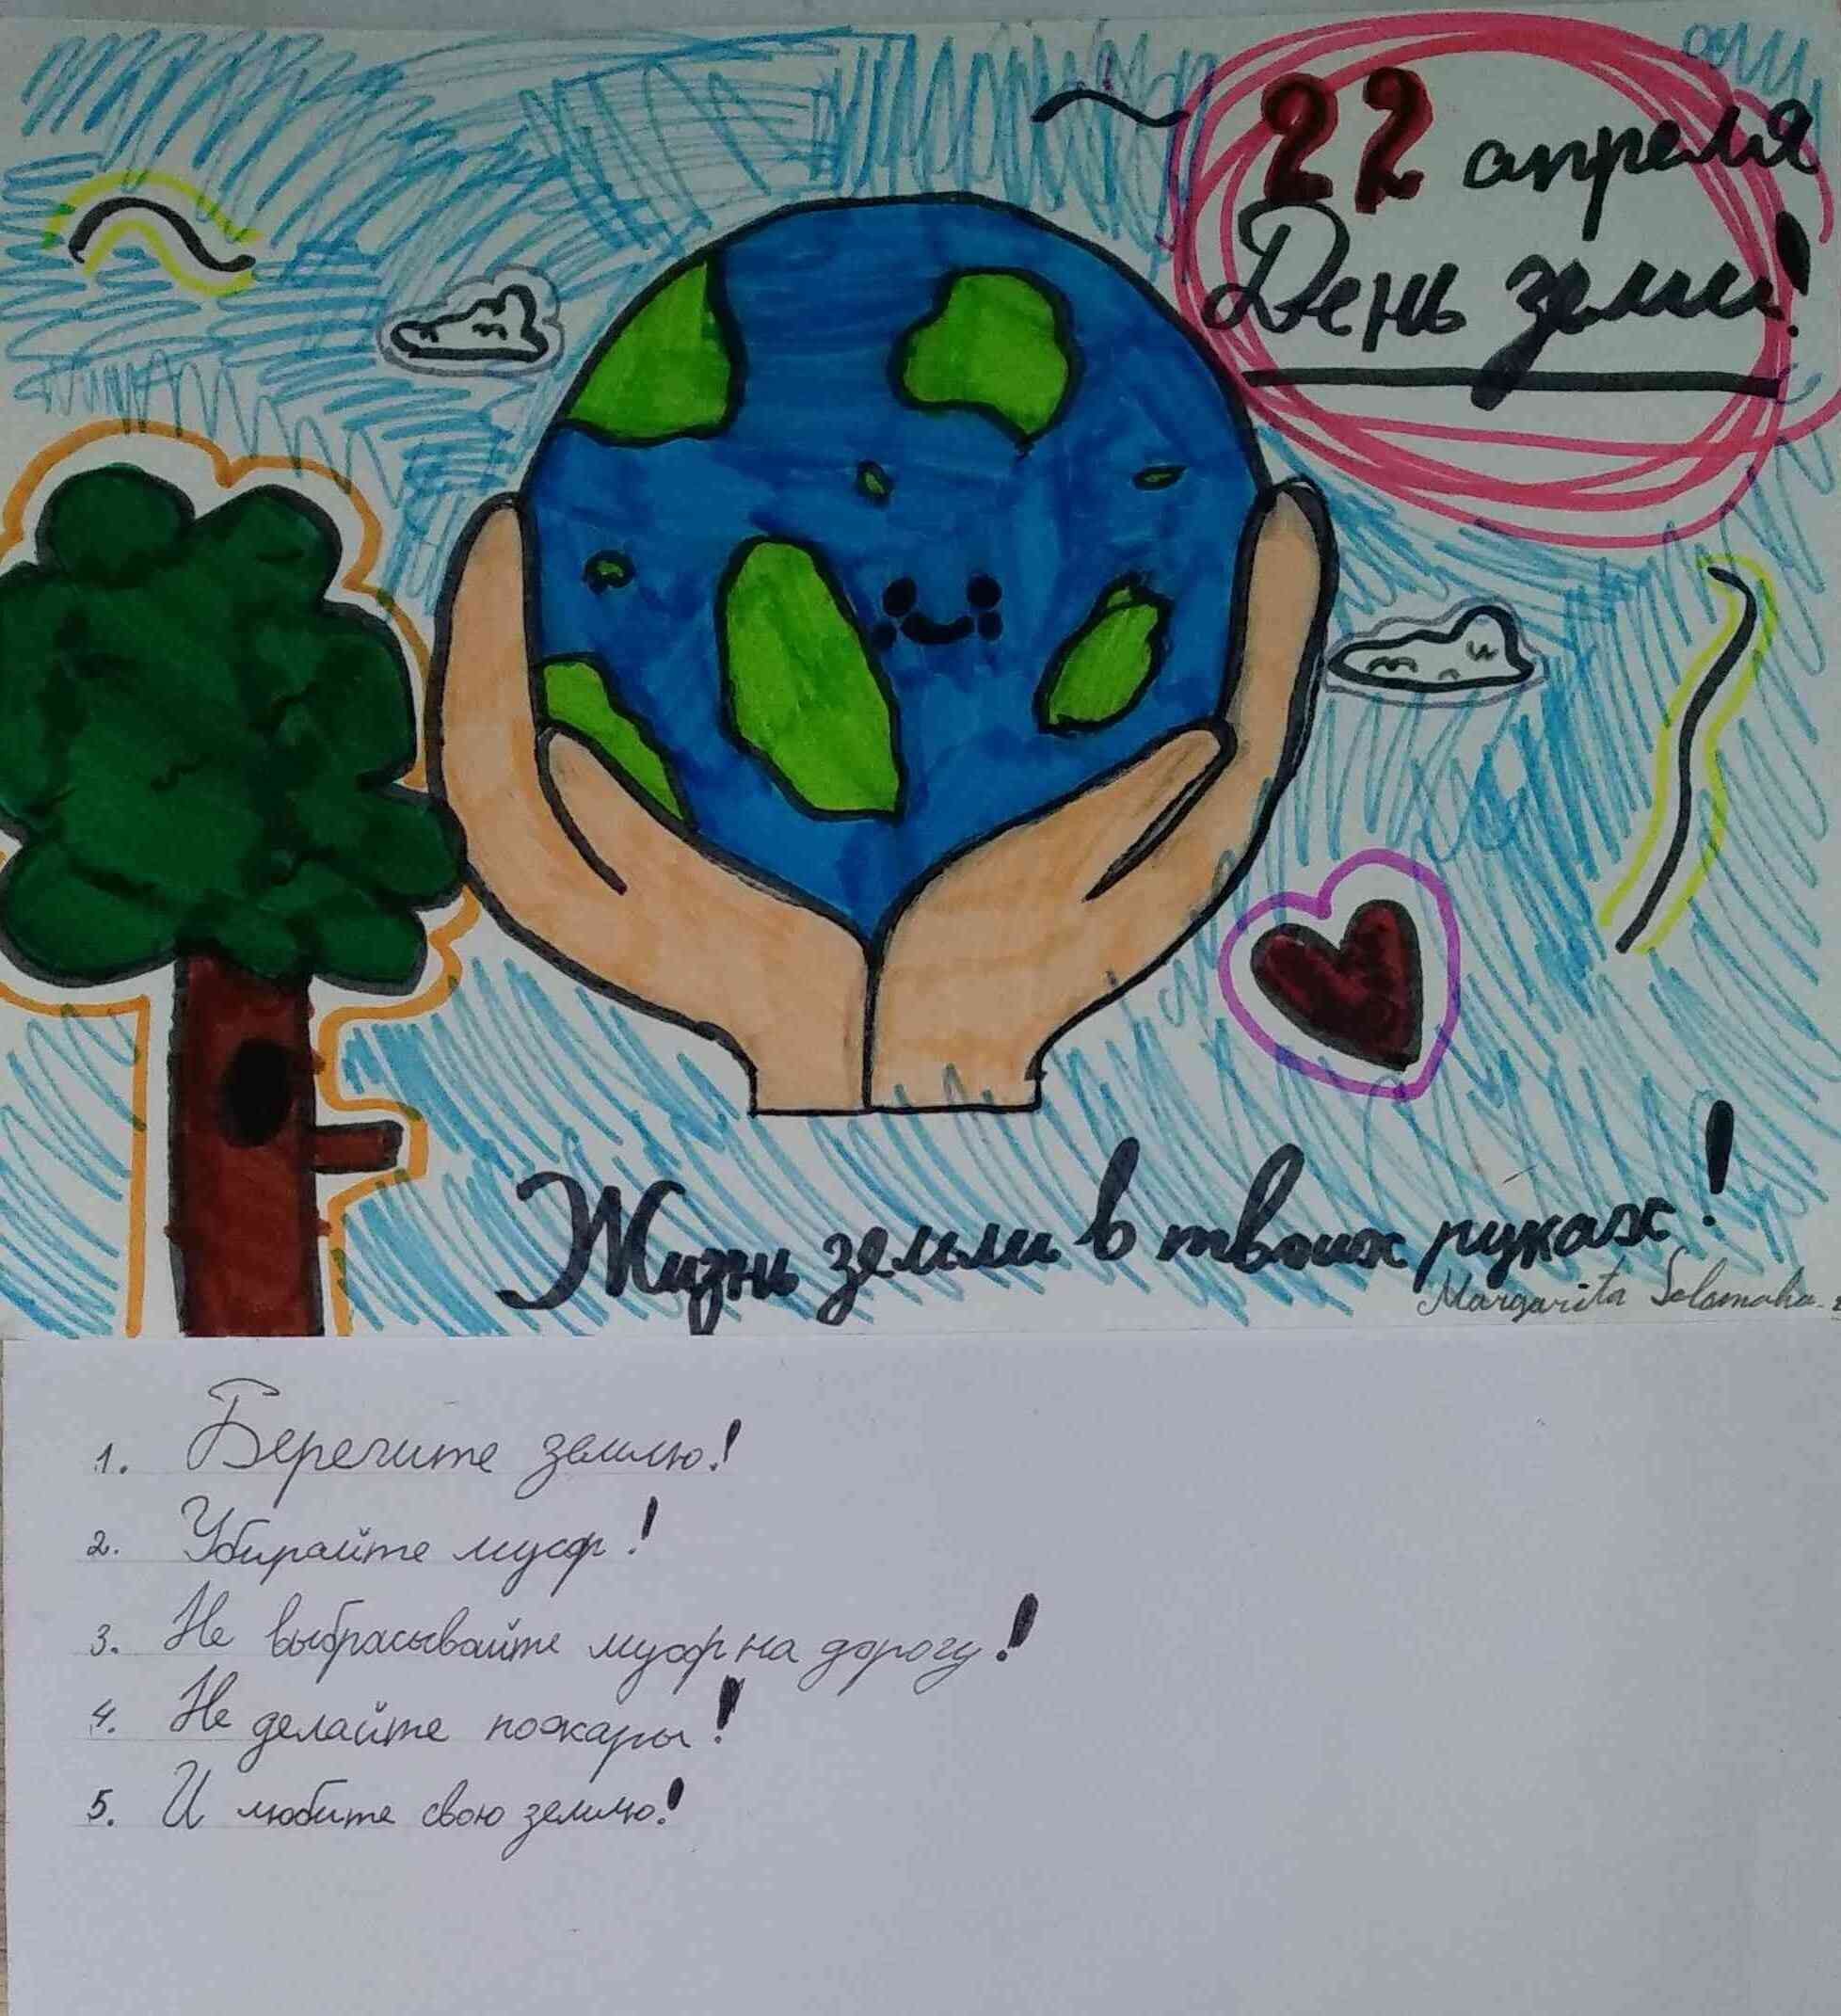 22 апреля
День земли!
Жизнь земли в твоих руках!
Margarita Solomaha.
1. Беречите землю!
2. Убирайте мусор!
3. Не выбрасывайте мусор на дорогу!
4. Не делайте пожары!
5. И любите свою землю!